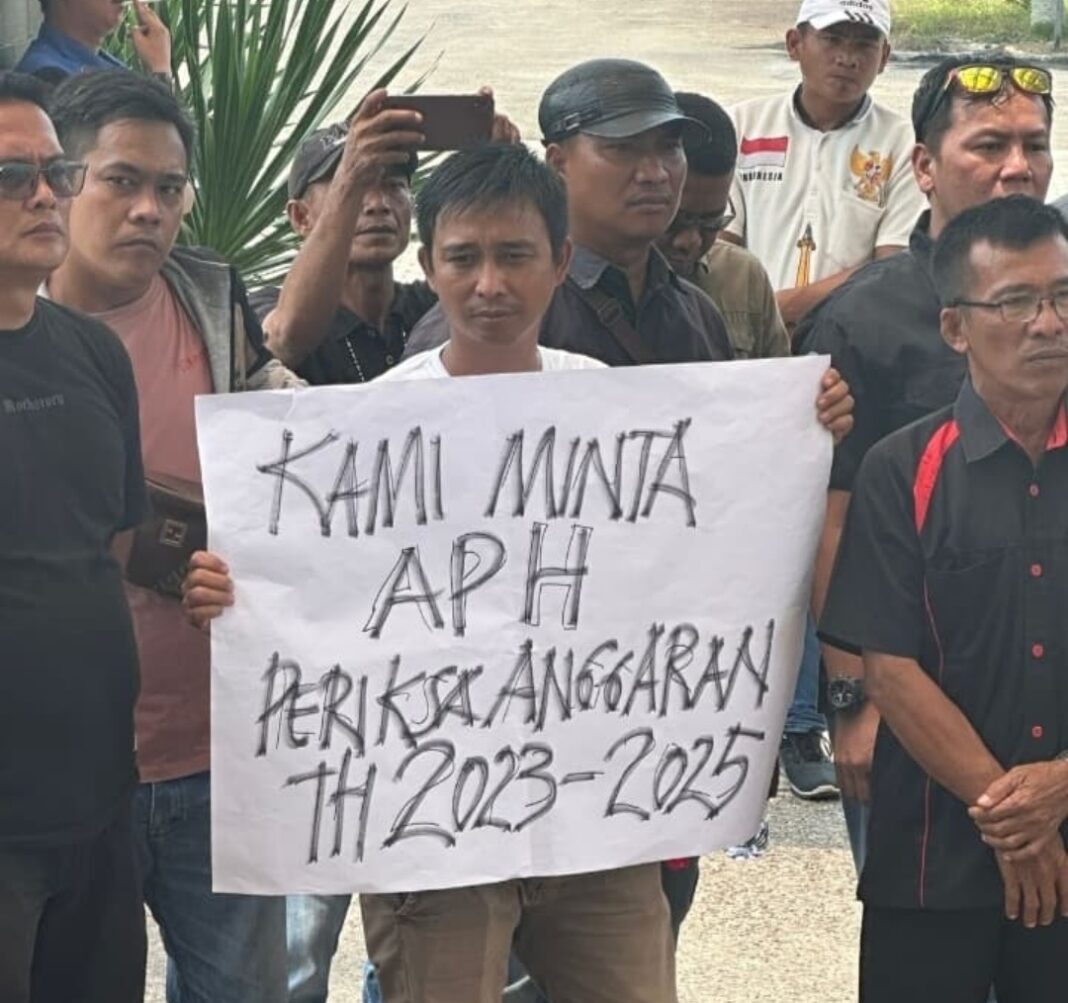 adidas
INDONESIA
KAMI MINTA
APH
PERIKSA ANGGARAN
TH 2023-2025